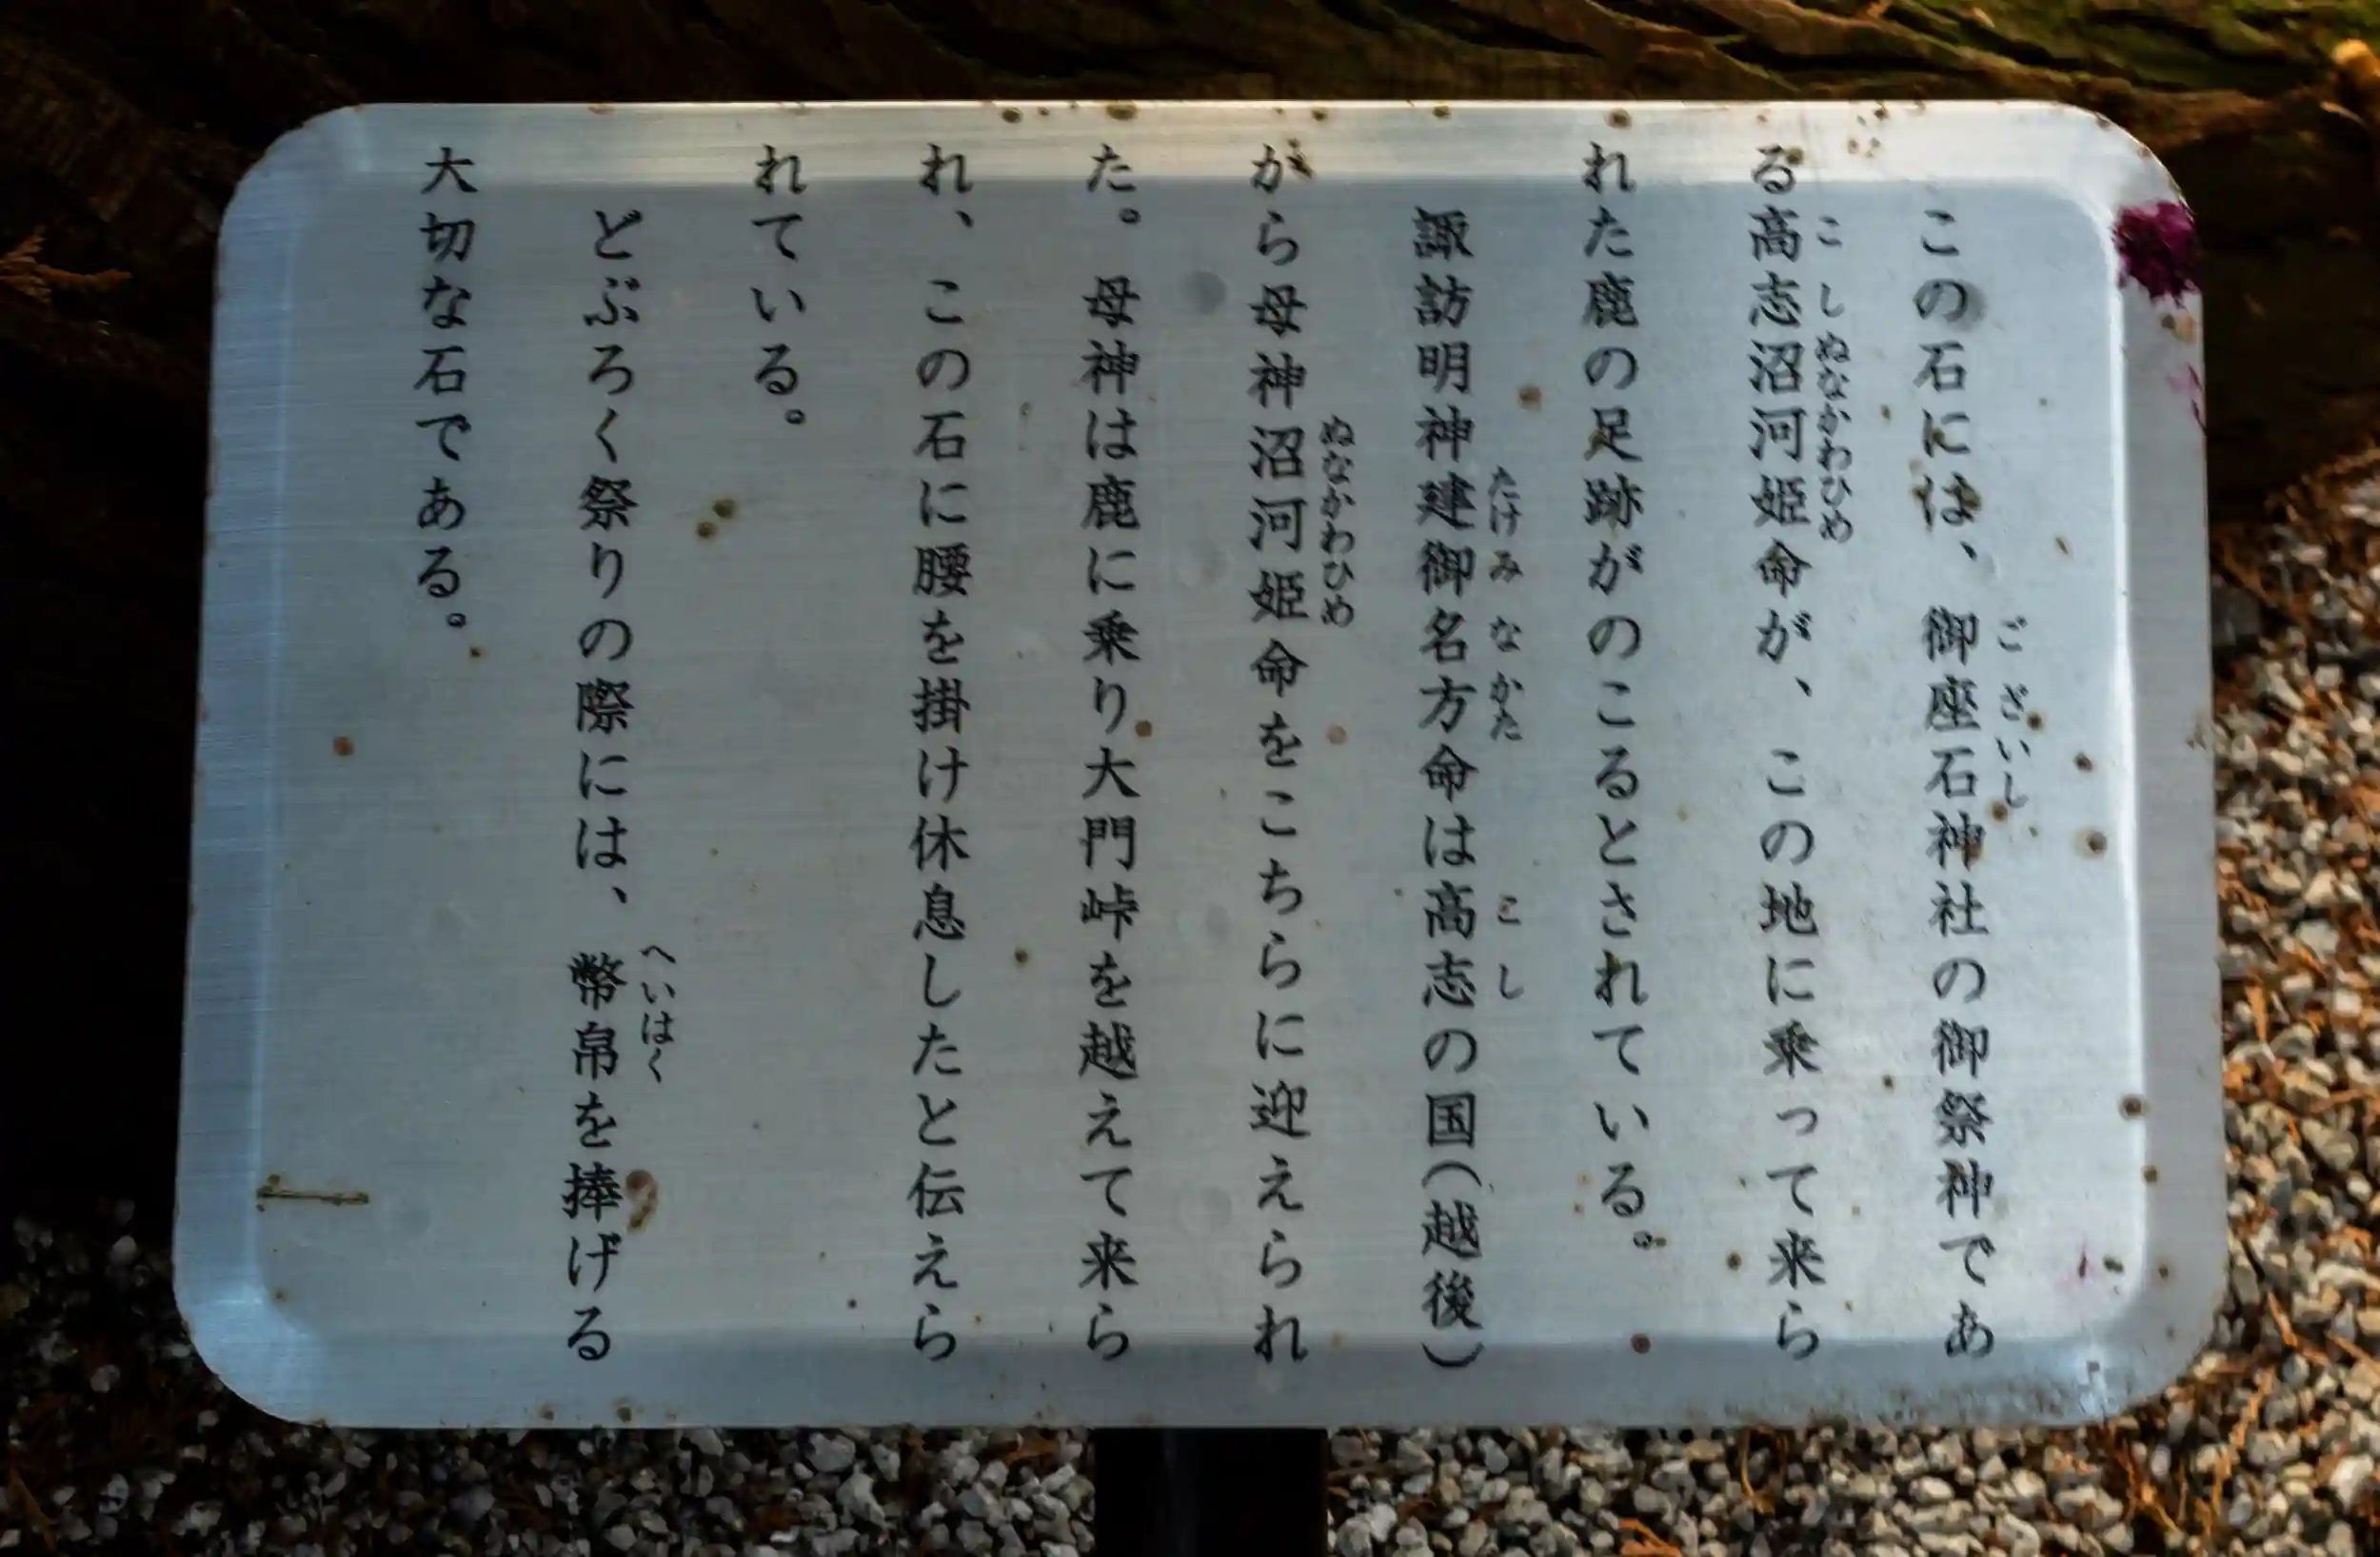 この石には、御座石神社の御祭神であ
る高志沼河姫命が、この地に乗って来ら
れた鹿の足跡がのこるとされている。
諏訪明神建御名方命は高志の国(越後)
から母神沼河姫命をこちらに迎えられ
た。母神は鹿に乗り大門峠を越えて来ら
れ、この石に腰を掛け休息したと伝えら
れている。
どぶろく祭りの際には、幣帛を捧げる
大切な石である。